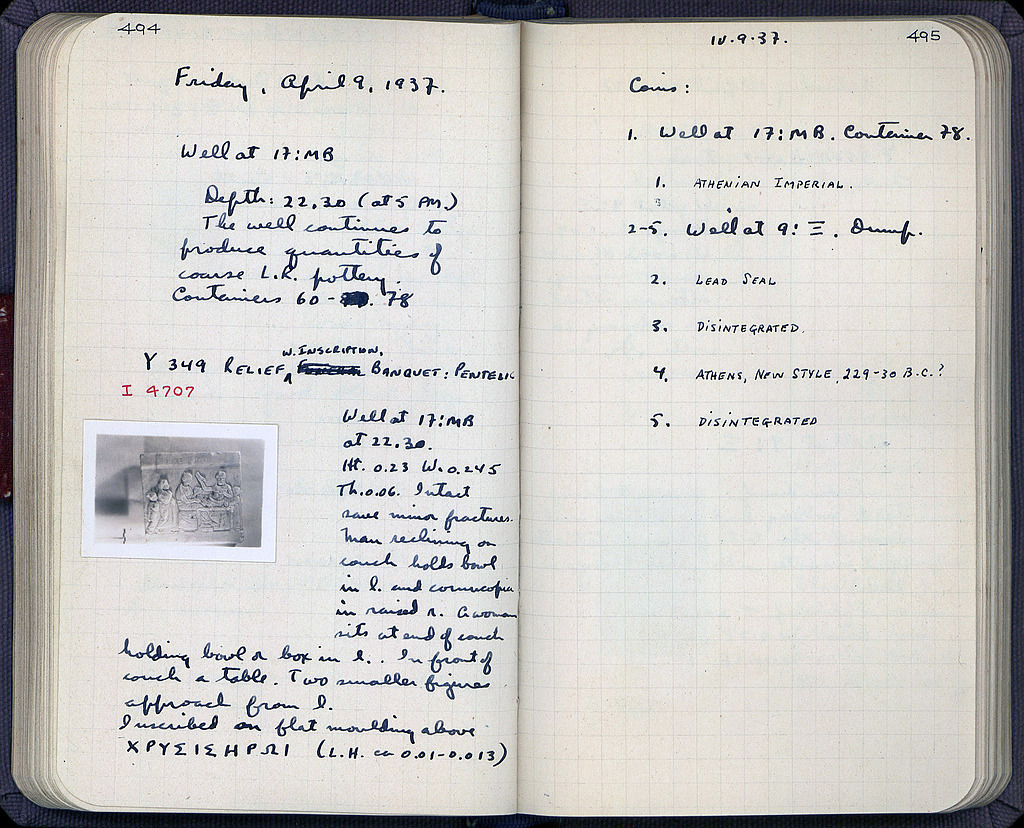 494
Friday, April 9, 1937.
Well at 17:MB
Depth: 22.30 (at 5 PM.)
The well continues to
produce quantities of
coarse L.R. pottery.
Containers 60 - 78
W. INSCRIPTION,
Y 349 RELIEF, BANQUET: PENTELIC
I 4707
Well at 17:MB
at 22.30.
Ht. 0.23 W. 0.245
Th. 0.06. Intact
save minor fractures.
Man reclining on
couch holds bowl
in l. and cornucopia
in raised r. A woman
sits at end of couch
holding bowl or box in l.. In front of
couch a table. Two smaller figures
approach from l.
Inscribed on flat moulding above
ΧΡΥΣΙΣΗΡΩΙ (L.H. ca 0.01-0.013)
IV.9.37.
495
Coins:
1. Well at 17:MB. Container 78.
1. ATHENIAN IMPERIAL.
2-5. Well at 9:Ξ. Dump.
2. LEAD SEAL
3. DISINTEGRATED.
4. ATHENS, NEW STYLE, 229-30 B.C.?
5. DISINTEGRATED